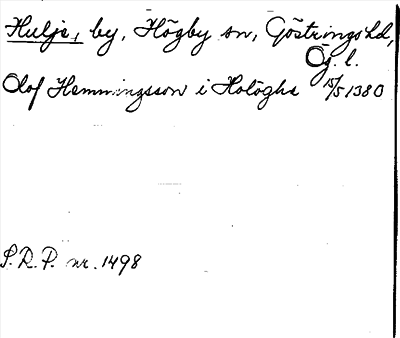 Hulje, by, Högby sn, Göstrings hd,
Ög. l.
Olof Hemmingsson i Hologhe 15/5 1380
S.R.P. nr. 1498